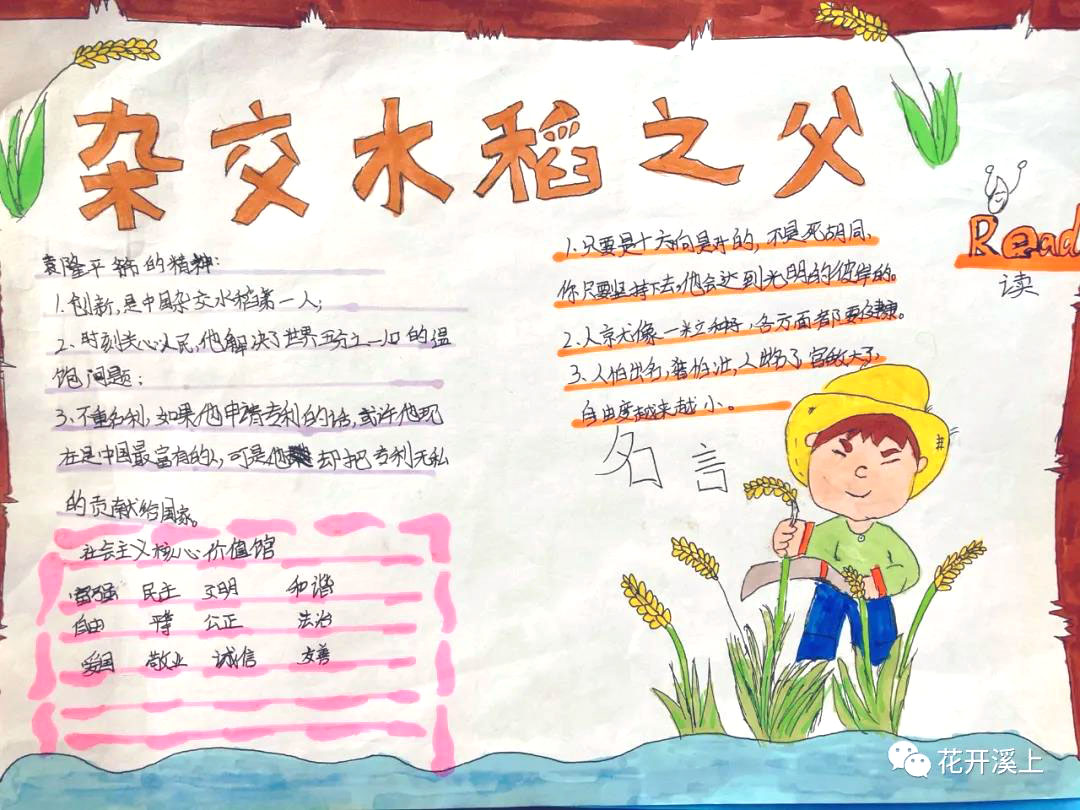 杂交水稻之父
袁隆平 的精神:
1.创新,是中国杂交水稻第一人;
2、时刻关心人民,他解决了世界五分之一口的温
饱问题;
3、不重名利,如果他申请专利的话,或许他现
在是中国最富有的人,可是他 却把专利无私
的贡献给国家。
社会主义核心价值馆
富强 民主 文明 和谐
自由 平等 公正 法治
爱国 敬业 诚信 友善
1.只要是 方向是 的,不是死胡同,
你只要坚持下去,他会达到光明的彼岸的。
2、人 像一粒种子,各方面都要健康。
3、人怕出名,猪怕壮,人出名了,
自由度越来越小。
名言
Read
读
花开溪上